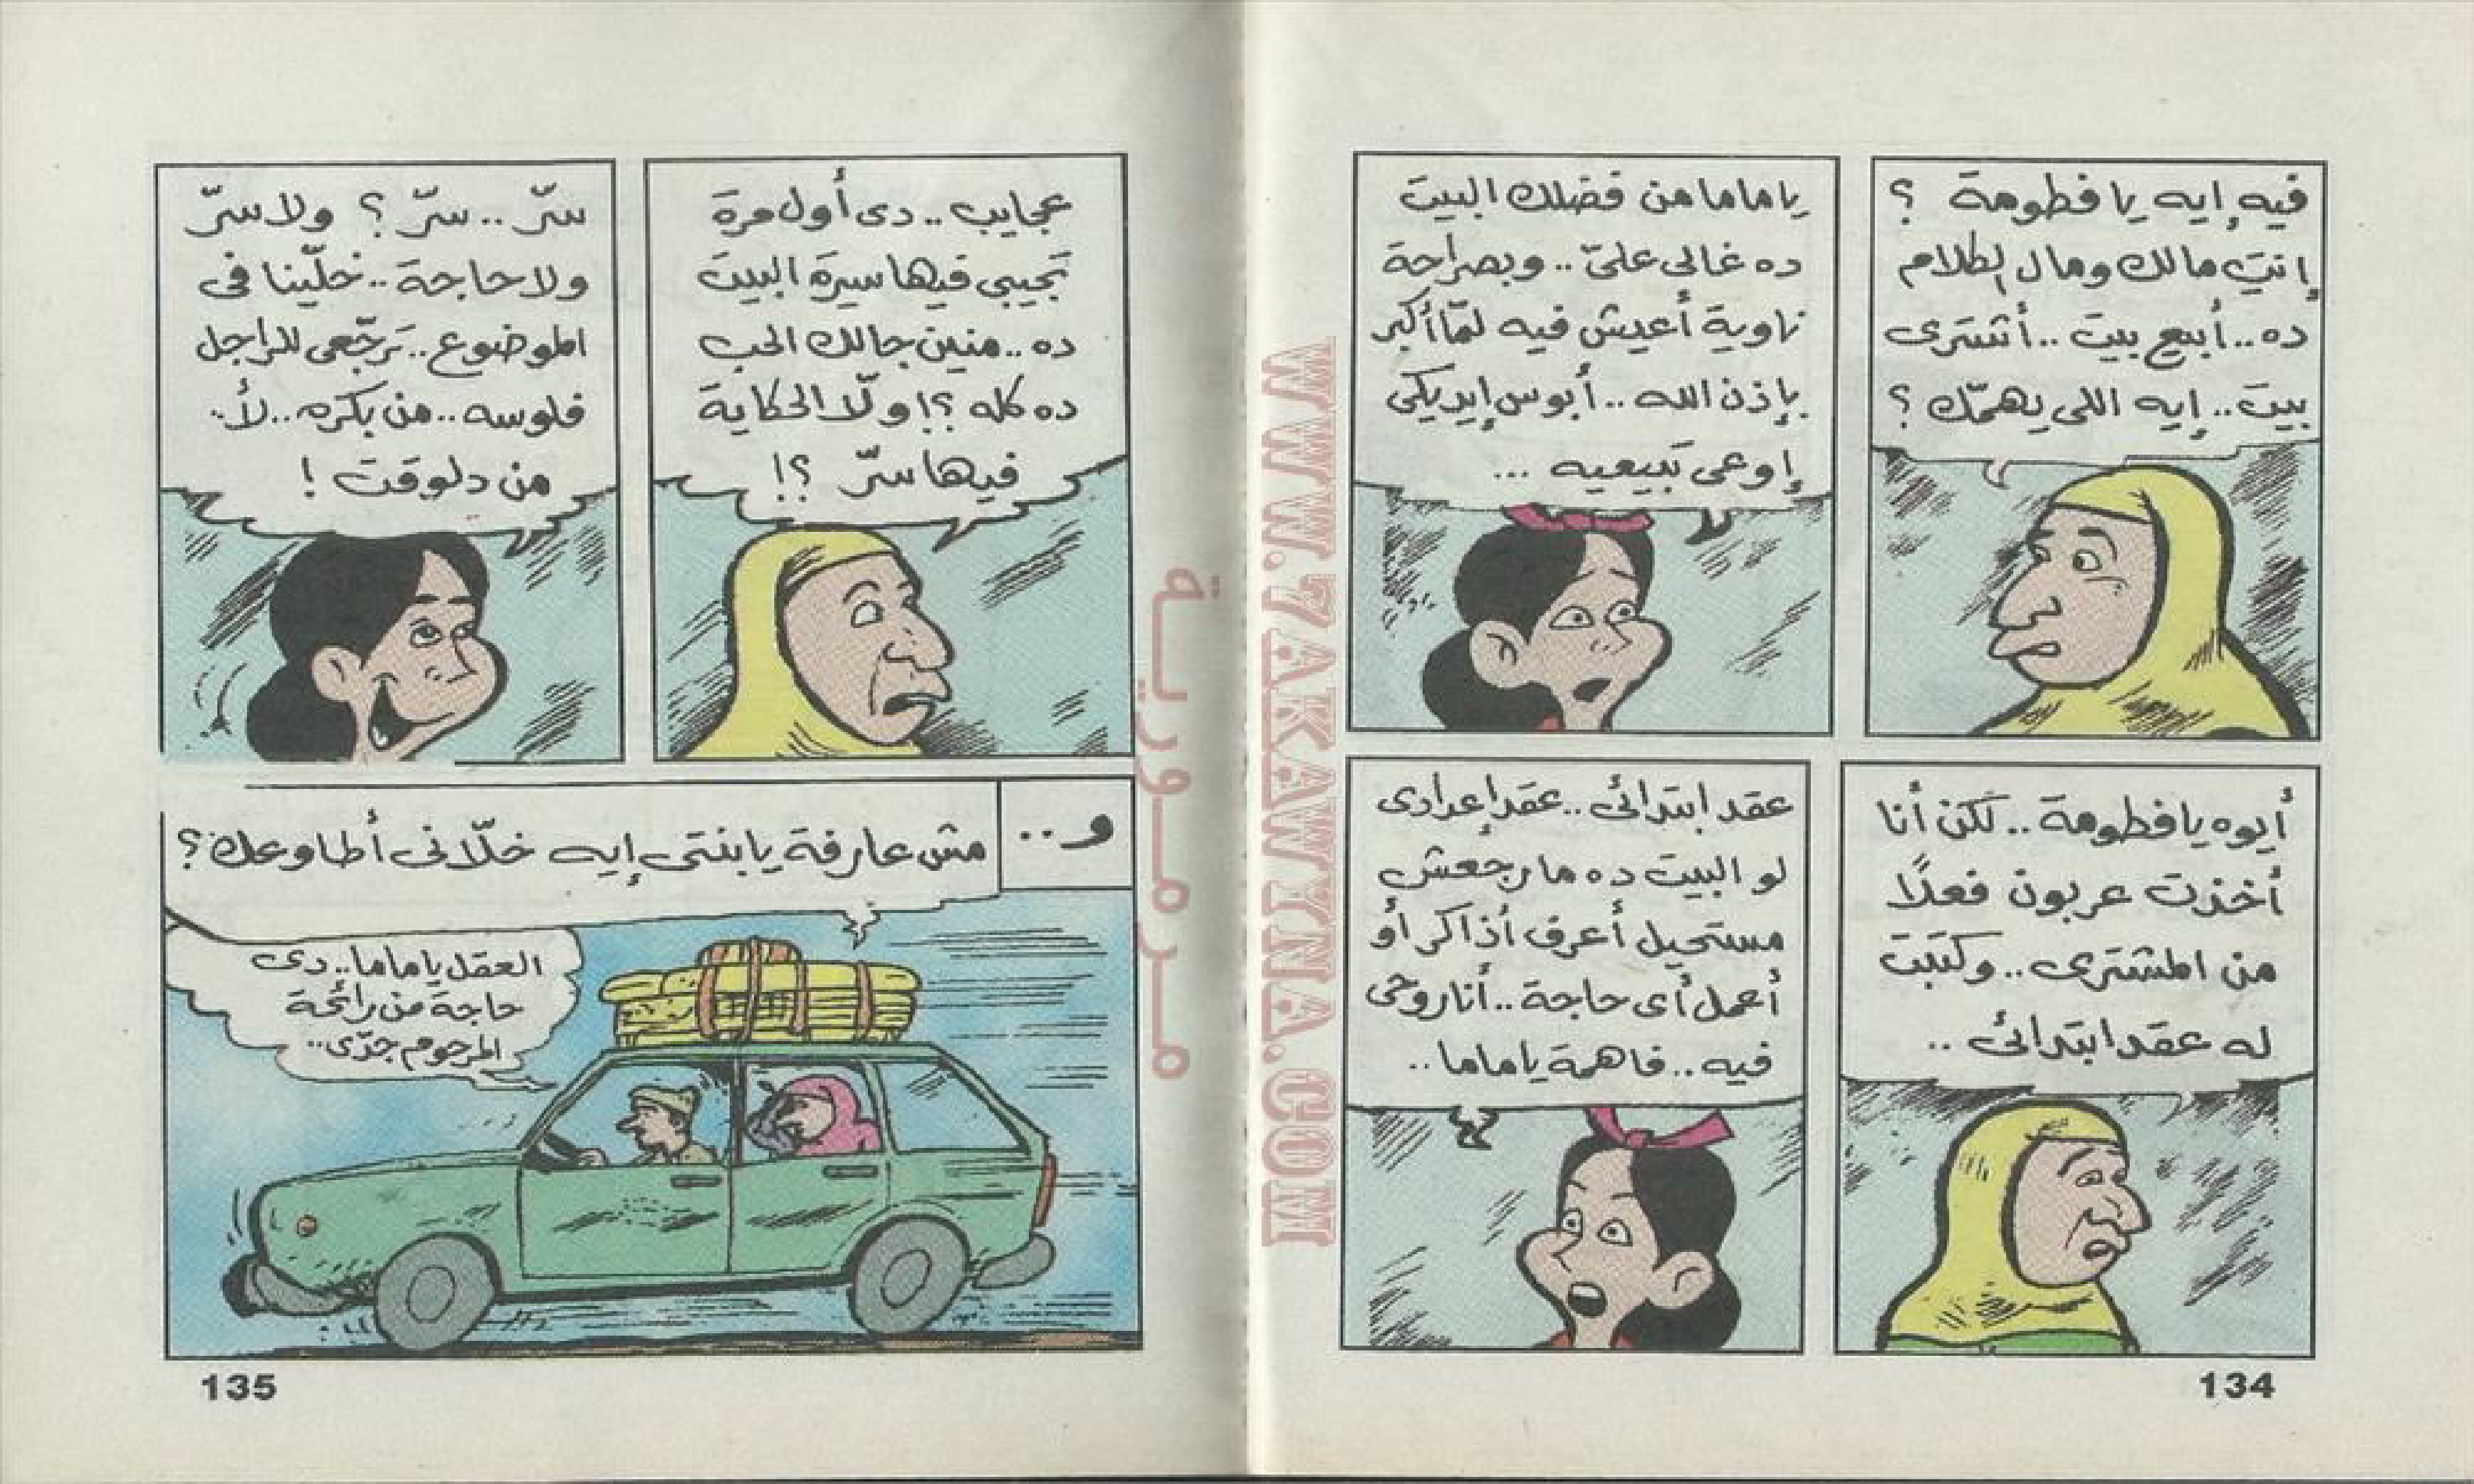 فيه إيه يا فطومة ؟
إنتِ مالك ومال الكلام
ده.. أبيع بيت .. أشترى
بيت.. إيه اللى يهمّك ؟
يا ماما من فضلك البيت
ده غالى علىّ .. وبصراحة
ناوية أعيش فيه لمّا أكبر
بإذن الله .. أبوس إيديكى
إوعى تبيعيه ...
أيوه يا فطومة .. لكن أنا
أخذت عربون فعلاً
من المشترى .. وكتبت
له عقد ابتدائى ..
عقد ابتدائى .. عقد إعدادى
لو البيت ده مارجعش
مستحيل أعرف أذاكر أو
أعمل أى حاجة .. أنا روحى
فيه .. فاهمة يا ماما ..
134
عجايب .. دى أول مرة
تجيبى فيها سيرة البيت
ده .. منين جالك الحب
ده كله ؟! ولّا الحكاية
فيها سرّ ؟!
سرّ .. سرّ ؟ ولا سرّ
ولا حاجة .. خلّينا فى
الموضوع .. ترجّعى للراجل
فلوسه .. من بكره .. لأ..
من دلوقت !
و..
مش عارفة يا بنتى إيه خلّانى أطاوعك ؟
العقل يا ماما .. دى
حاجة من رائحة
المرحوم جدّى ..
135
WWW.7AKAWYNA.COM
مرمورية